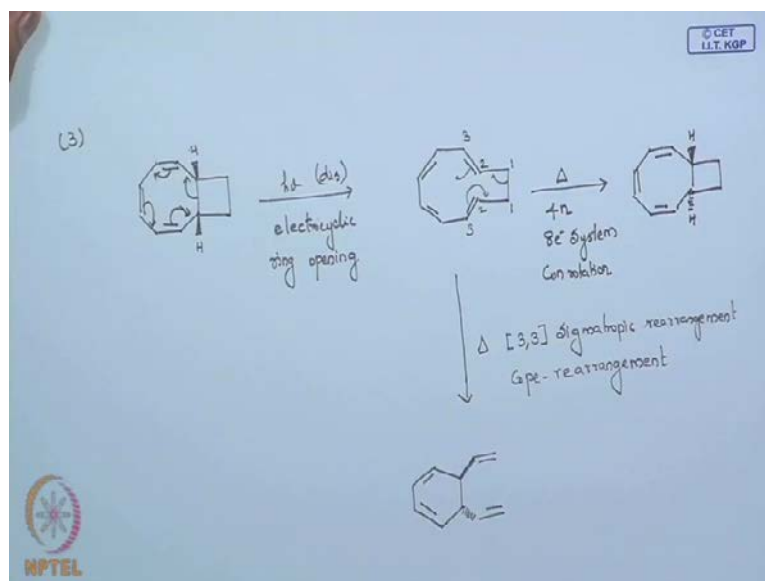 © CET
I.I.T. KGP
(3)
H
H
hν (dis)
electrocyclic
ring opening
3
2
1
2
1
3
Δ
4n
8e⁻ System
Con rotation
H
H
Δ [3,3] Sigmatropic rearrangement
Cope-rearrangement
NPTEL